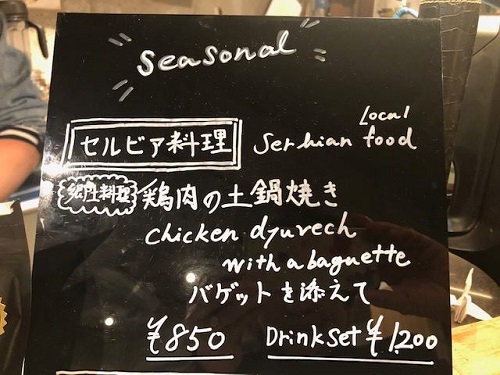 seasonal
Local
セルビア料理 Serbian food
郷土料理 鶏肉の土鍋焼き
chicken dyuvech
with a baguette
バゲットを添えて
¥850 Drink set ¥1,200